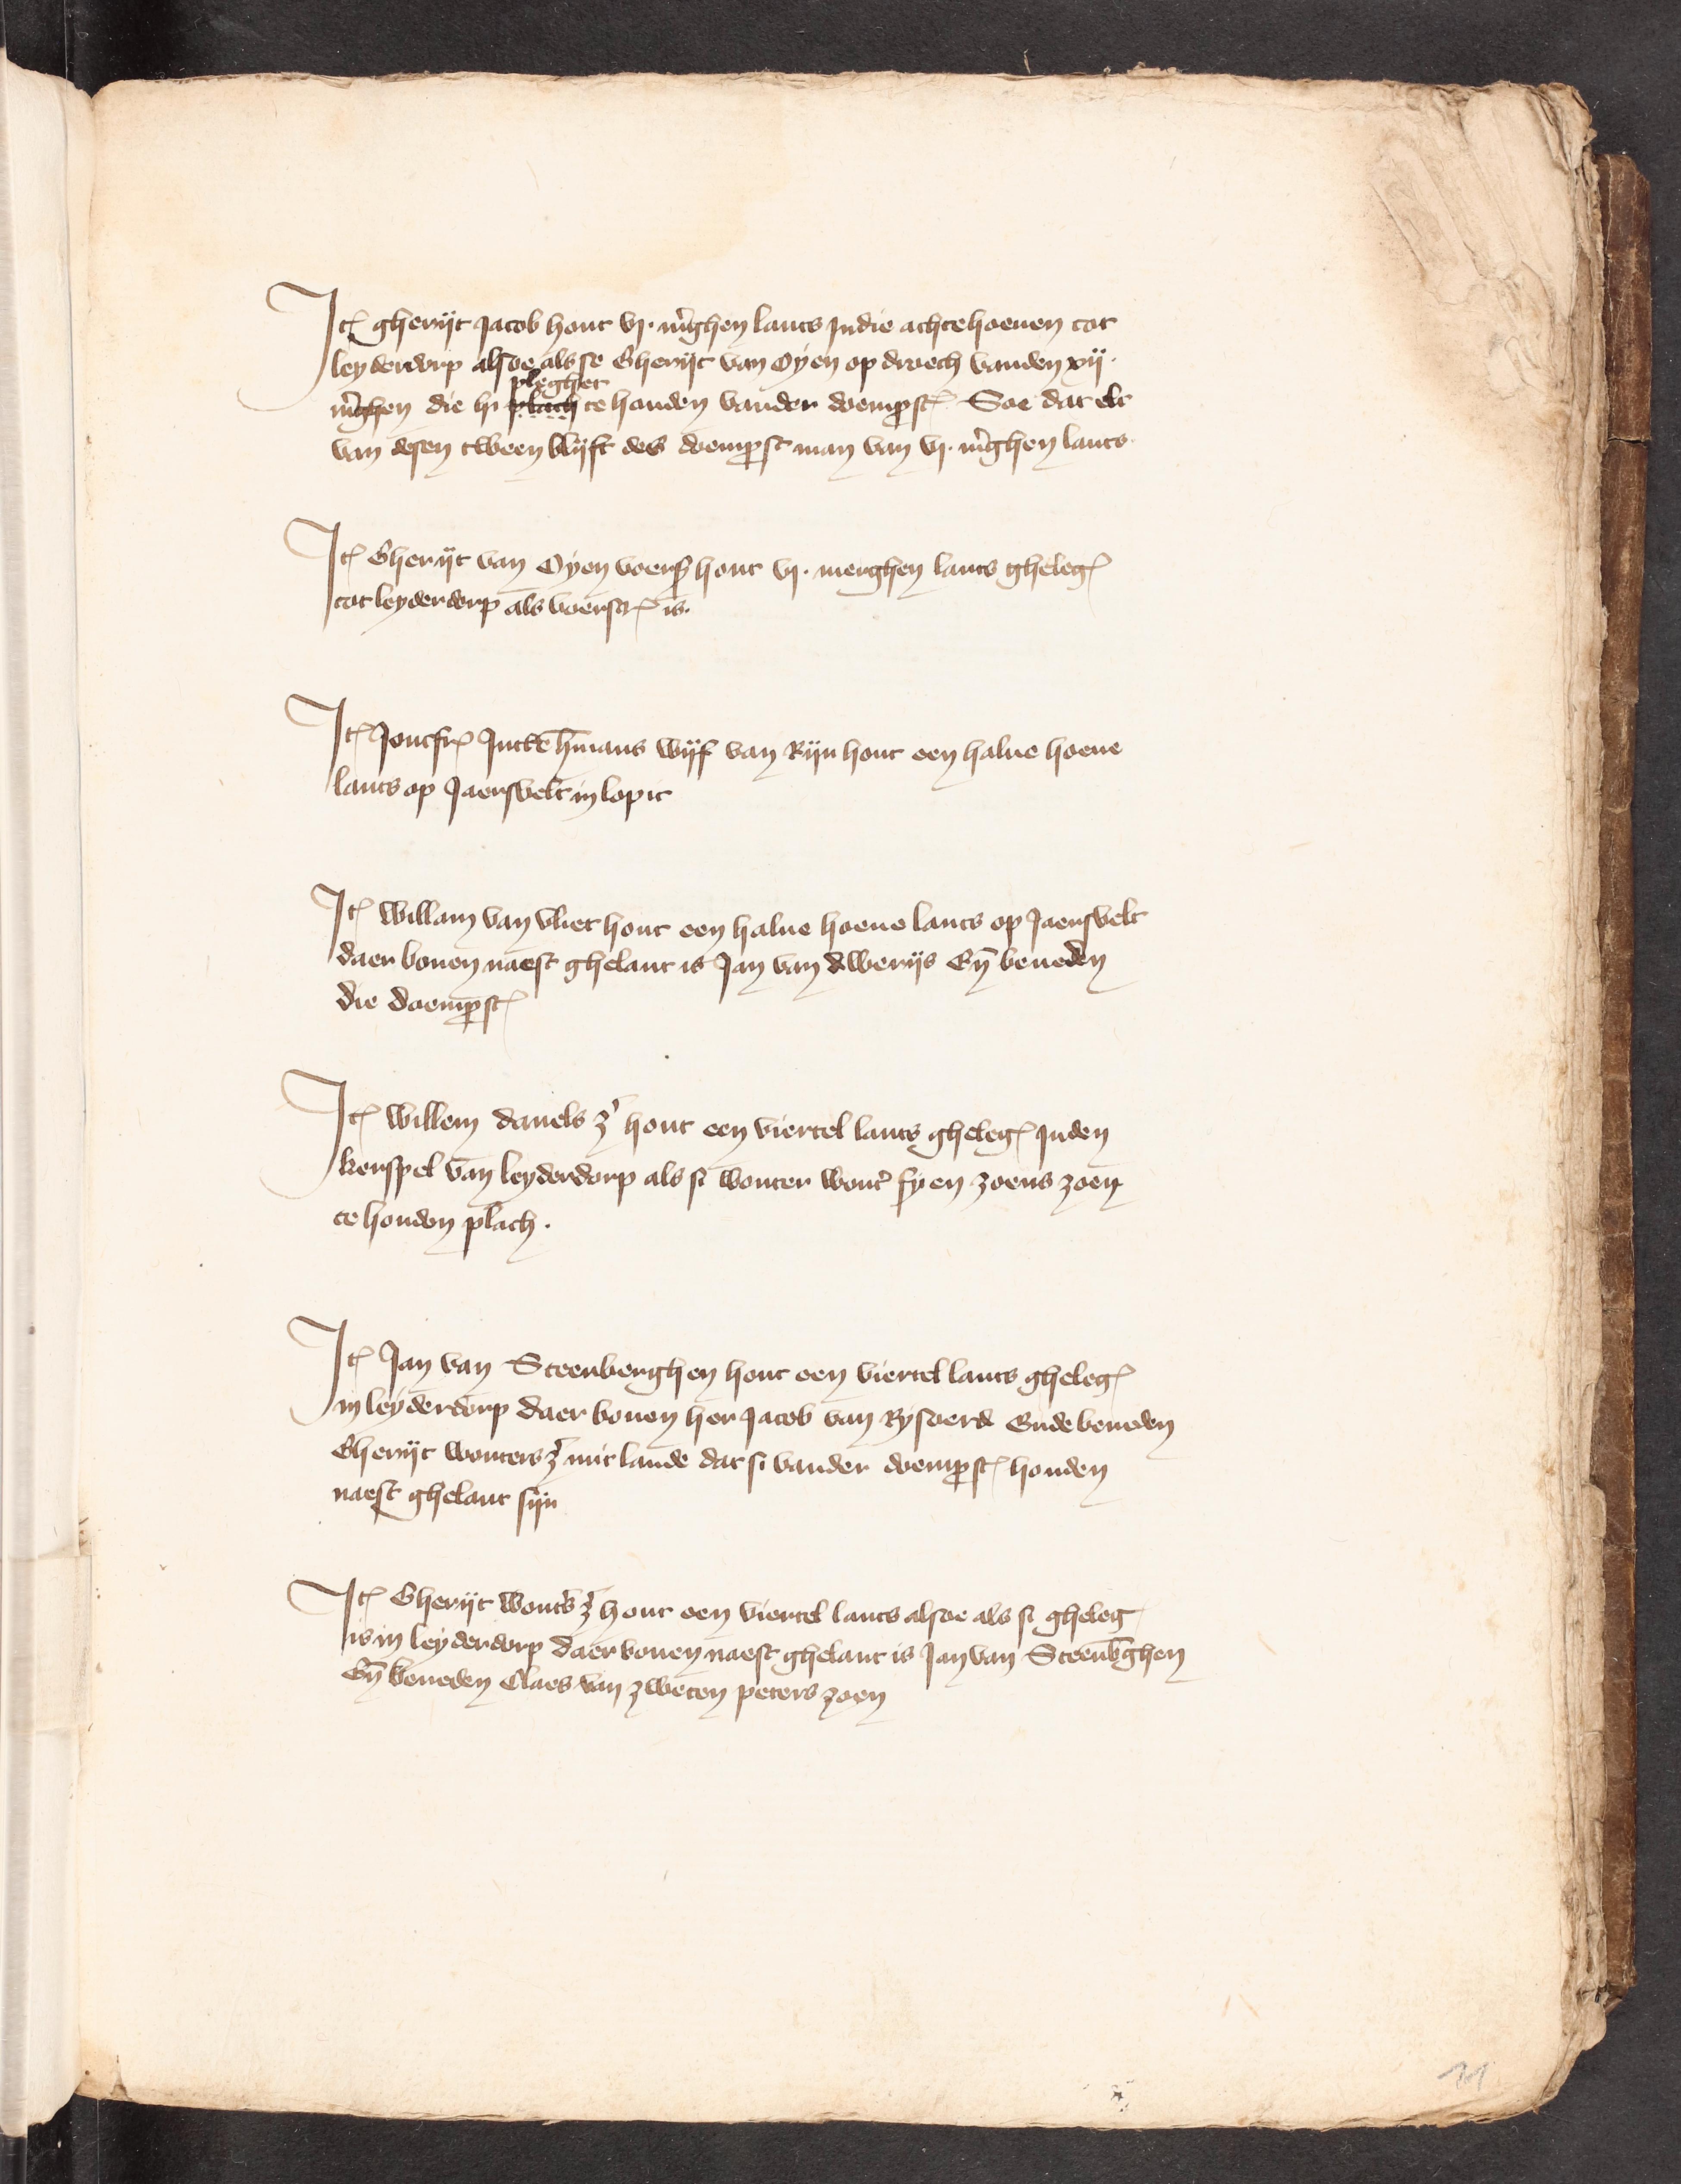 Jt gherijt Jacob hout vj. m'ghen lants Jndie achtehoeuen tot
leyderdorp alsoe als se Gherijt van Oyen op droech vanden xij.
pleghet
m'ghen die hi plach te houden vander doemp'st Soe dat elc
van desen tween blijft des doemp'st man van vj. m'ghen lants.
Jt Gherijt van Oyen voers hout vj. merghen lants gheleg
tot leyderdorp als voerscr is.
Jt Joncfr Jutte h'mans wijf van Rijn hout een halue hoeue
lants op Jaersvelt in lopic
Jt Willam van vliet hout een halue hoeue lants op Jaersvelt
daer bouen naest ghelant is Jan van werijs En beneden
die doemp'st
Jt Willem daniels z' hout een viertel lants gheleg Jnden
kerspel van leyderdorp als si wouter wout' syen zoens zoen
te houden plach.
Jt Jan van Steenberghen hout een viertel lants gheleg
in leyderdorp daer bouen her Jacob van Rysoerd Ende beneden
Gherijt wouters z' mit lande dat si vander doemp'st houden
naest ghelant sijn
Jt Gherijt wout's z' hout een viertel lants alsoe als si gheleg
is in leyderdorp daer bouen naest ghelant is Jan van Steenb'ghen
En beneden Claes van zweten peters zoen